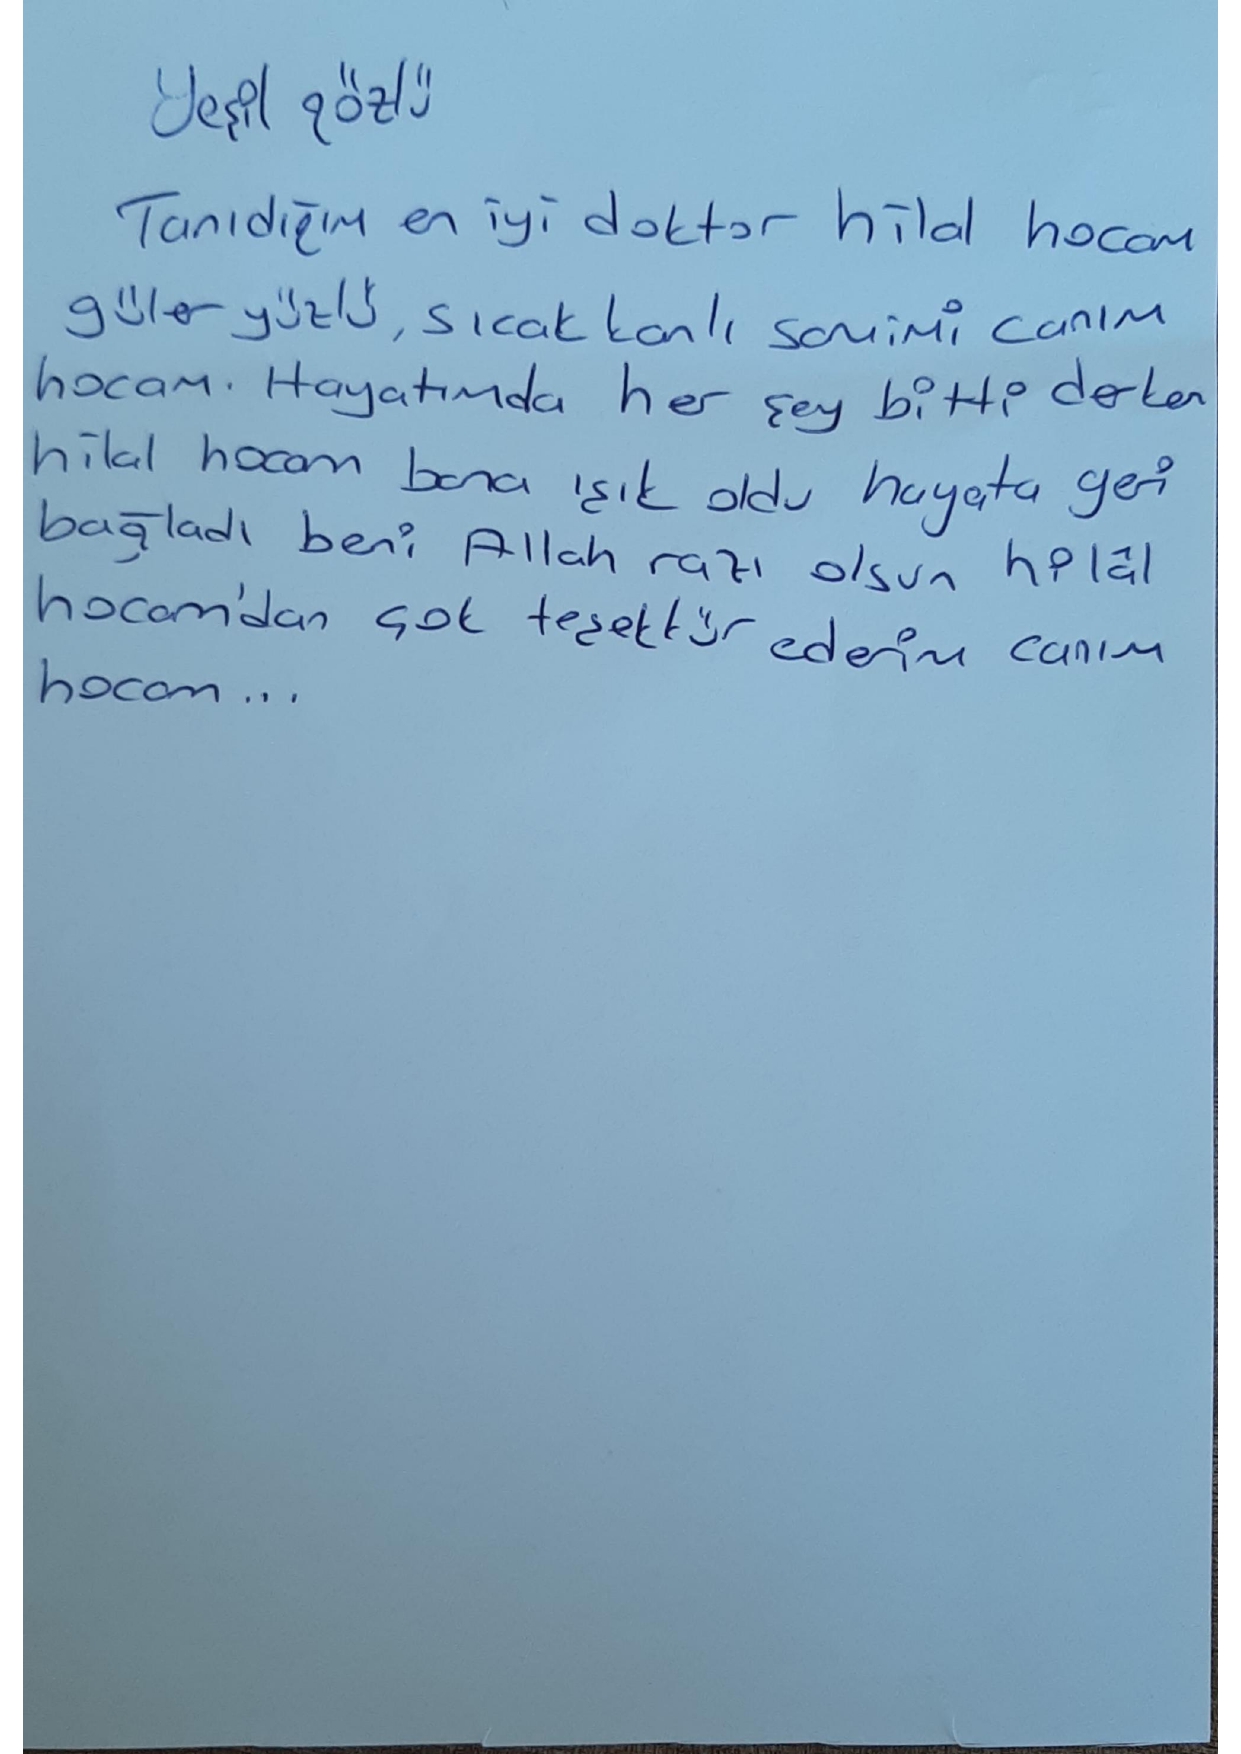 Yeşil gözlü
Tanıdığım en iyi doktor hilal hocam
güler yüzlü, sıcak kanlı samimi canım
hocam. Hayatımda her şey bitti derken
hilal hocam bana ışık oldu hayata geri
bağladı beni Allah razı olsun hilâl
hocam'dan çok teşekkür ederim canım
hocam...